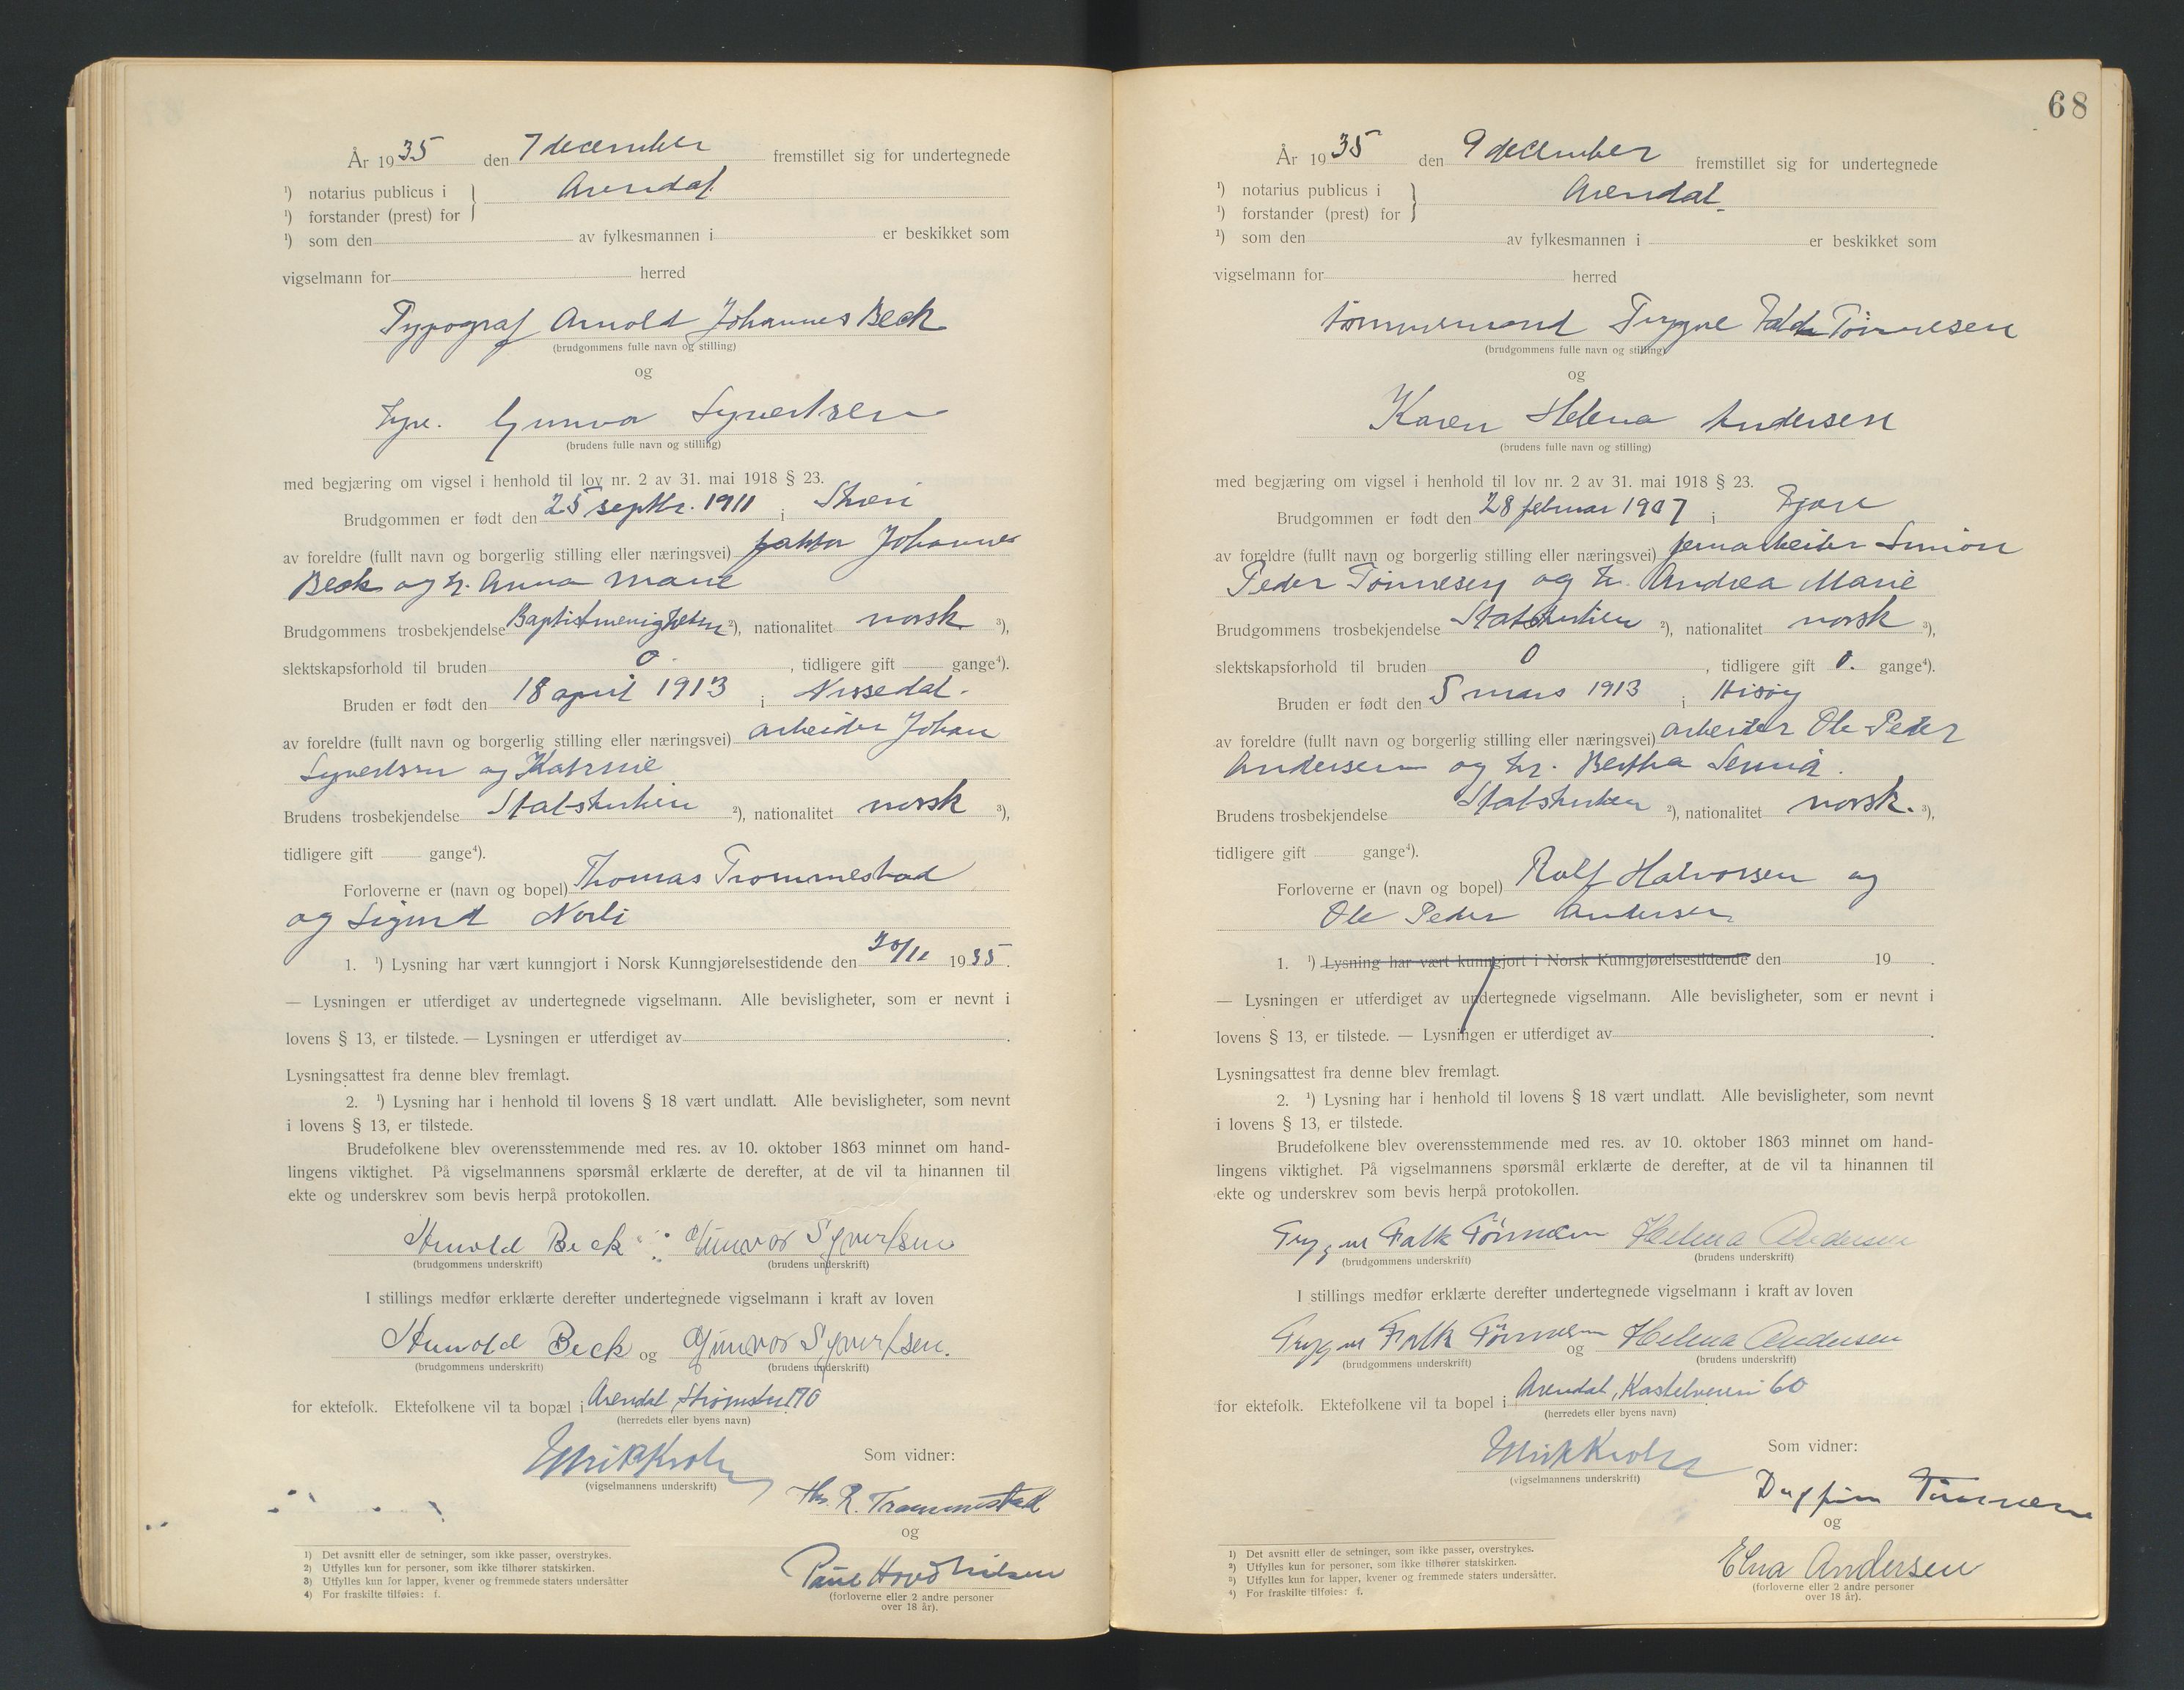 År 1935 den 7 december fremstillet sig for undertegnede
¹) notarius publicus i } Arendal
¹) forstander (prest) for
¹) som den av fylkesmannen i er beskikket som
vigselmann for herred
Typograf Arnold Johannes Beck
(brudgommens fulle navn og stilling)
og
Gunvor Syvertsen
(brudens fulle navn og stilling)
med begjæring om vigsel i henhold til lov nr. 2 av 31. mai 1918 § 23.
Brudgommen er født den 25 septbr. 1911 i
av foreldre (fullt navn og borgerlig stilling eller næringsvei) faktor Johannes
Beck og h. Anna Marie
Brudgommens trosbekjendelse Baptistmenigheten ²), nationalitet norsk ³),
slektskapsforhold til bruden 0 , tidligere gift gange⁴).
Bruden er født den 18 april 1913 i Nissedal.
av foreldre (fullt navn og borgerlig stilling eller næringsvei) arbeider Johan
Syvertsen og Katrine
Brudens trosbekjendelse Statskirken ²), nationalitet norsk ³),
tidligere gift gange⁴).
Forloverne er (navn og bopel) Thomas Trommestad
og Sigurd Norli
1. ¹) Lysning har vært kunngjort i Norsk Kunngjørelsestidende den 30/11 1935.
— Lysningen er utferdiget av undertegnede vigselmann. Alle bevisligheter, som er nevnt i
lovens § 13, er tilstede. — Lysningen er utferdiget av .
Lysningsattest fra denne blev fremlagt.
2. ¹) Lysning har i henhold til lovens § 18 vært undlatt. Alle bevisligheter, som nevnt
i lovens § 13, er tilstede.
Brudefolkene blev overensstemmende med res. av 10. oktober 1863 minnet om hand-
lingens viktighet. På vigselmannens spørsmål erklærte de derefter, at de vil ta hinannen til
ekte og underskrev som bevis herpå protokollen.
Arnold Beck Gunvor Syvertsen
(brudgommens underskrift) (brudens underskrift)
I stillings medfør erklærte derefter undertegnede vigselmann i kraft av loven
Arnold Beck og Gunvor Syvertsen.
(brudgommens underskrift) (brudens underskrift)
for ektefolk. Ektefolkene vil ta bopæl i Arendal,
(herredets eller byens navn)
Ulrik Krohn Som vidner:
(vigselmannens underskrift)
Th. R. Trommestad
og
Paul Hovd Nilsen
(forloverne eller 2 andre personer
over 18 år).
1) Det avsnitt eller de setninger, som ikke passer, overstrykes.
2) Utfylles kun for personer, som ikke tilhører statskirken.
3) Utfylles kun for lapper, kvener og fremmede staters undersåtter
4) For fraskilte tilføies: f.
68
År 1935 den 9 december fremstillet sig for undertegnede
¹) notarius publicus i } Arendal.
¹) forstander (prest) for
¹) som den av fylkesmannen i er beskikket som
vigselmann for herred
tømmermand Trygve Falk Tønnesen
(brudgommens fulle navn og stilling)
og
Karen Helena Andersen
(brudens fulle navn og stilling)
med begjæring om vigsel i henhold til lov nr. 2 av 31. mai 1918 § 23.
Brudgommen er født den 28 februar 1907 i
av foreldre (fullt navn og borgerlig stilling eller næringsvei) jernarbeider Simon
Peder Tønnesen og h. Andrea Marie
Brudgommens trosbekjendelse Statskirken ²), nationalitet norsk ³),
slektskapsforhold til bruden 0 , tidligere gift 0. gange⁴).
Bruden er født den 5 mars 1913 i Hisøy
av foreldre (fullt navn og borgerlig stilling eller næringsvei) arbeider Ole Peder
Andersen og h. Bertha
Brudens trosbekjendelse Statskirken ²), nationalitet norsk. ³),
tidligere gift gange⁴).
Forloverne er (navn og bopel) Rolf Halvorsen og
Ole Peder Andersen
1. ¹) Lysning har vært kunngjort i Norsk Kunngjørelsestidende den 19 .
— Lysningen er utferdiget av undertegnede vigselmann. Alle bevisligheter, som er nevnt i
lovens § 13, er tilstede. — Lysningen er utferdiget av .
Lysningsattest fra denne blev fremlagt.
2. ¹) Lysning har i henhold til lovens § 18 vært undlatt. Alle bevisligheter, som nevnt
i lovens § 13, er tilstede.
Brudefolkene blev overensstemmende med res. av 10. oktober 1863 minnet om hand-
lingens viktighet. På vigselmannens spørsmål erklærte de derefter, at de vil ta hinannen til
ekte og underskrev som bevis herpå protokollen.
Trygve Falk Tønnesen Helena Andersen
(brudgommens underskrift) (brudens underskrift)
I stillings medfør erklærte derefter undertegnede vigselmann i kraft av loven
Trygve Falk Tønnesen og Helena Andersen
(brudgommens underskrift) (brudens underskrift)
for ektefolk. Ektefolkene vil ta bopel i Arendal, Kastelveien 60
(herredets eller byens navn)
Ulrik Krohn Som vidner:
(vigselmannens underskrift)
Dagfinn Tønnesen
og
Elna Andersen
(forloverne eller 2 andre personer
over 18 år).
1) Det avsnitt eller de setninger, som ikke passer, overstrykes.
2) Utfylles kun for personer, som ikke tilhører statskirken.
3) Utfylles kun for lapper, kvener og fremmede staters undersåtter.
4) For fraskilte tilføies: f.